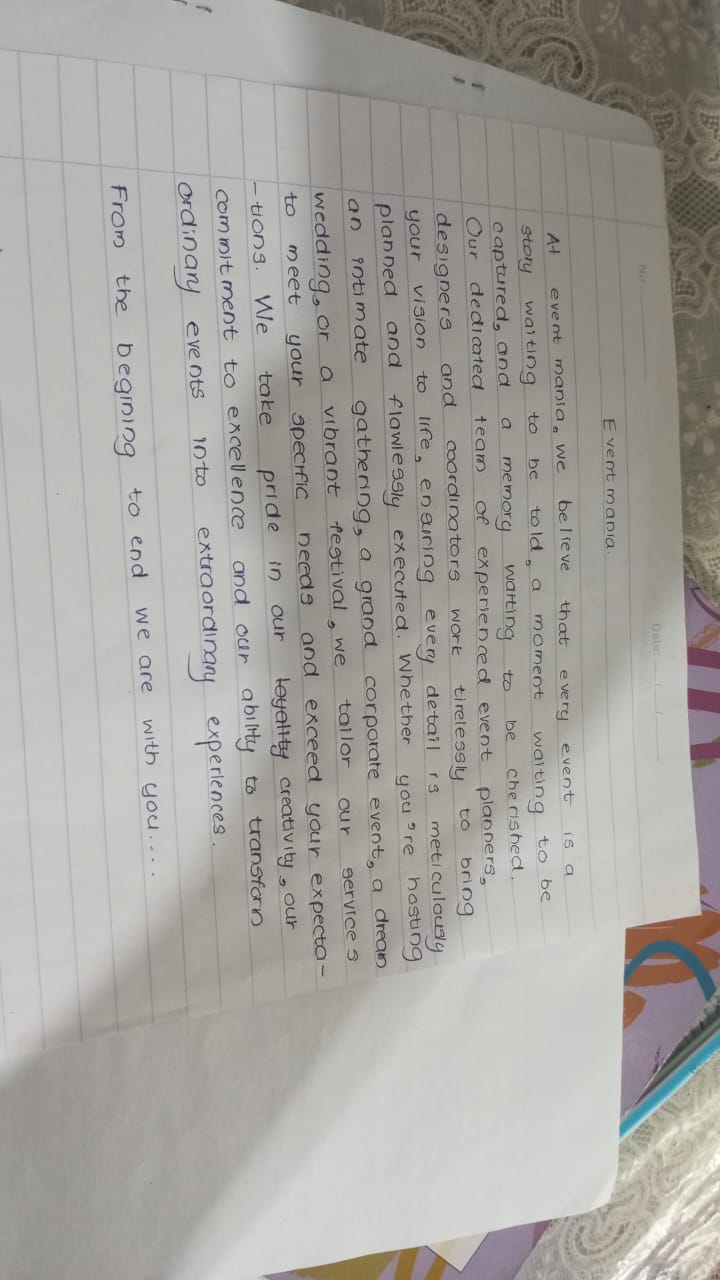 No :
Date: / /
Event mania.
At event mania, we believe that every event is a
story waiting to be told, a moment waiting to be
captured, and a memory waiting to be cherished.
Our dedicated team of experienced event planners,
designers and coordinators work tirelessly to bring
your vision to life, ensuring every detail is meticulously
planned and flawlessly executed. Whether you're hosting
an intimate gathering, a grand corporate event, a dream
wedding, or a vibrant festival, we tailor our services
to meet your specific needs and exceed your expecta-
- tions. We take pride in our loyality creativity, our
commitment to excellence and our ability to transform
ordinary events into extraordinary experiences.
From the begining to end we are with you....